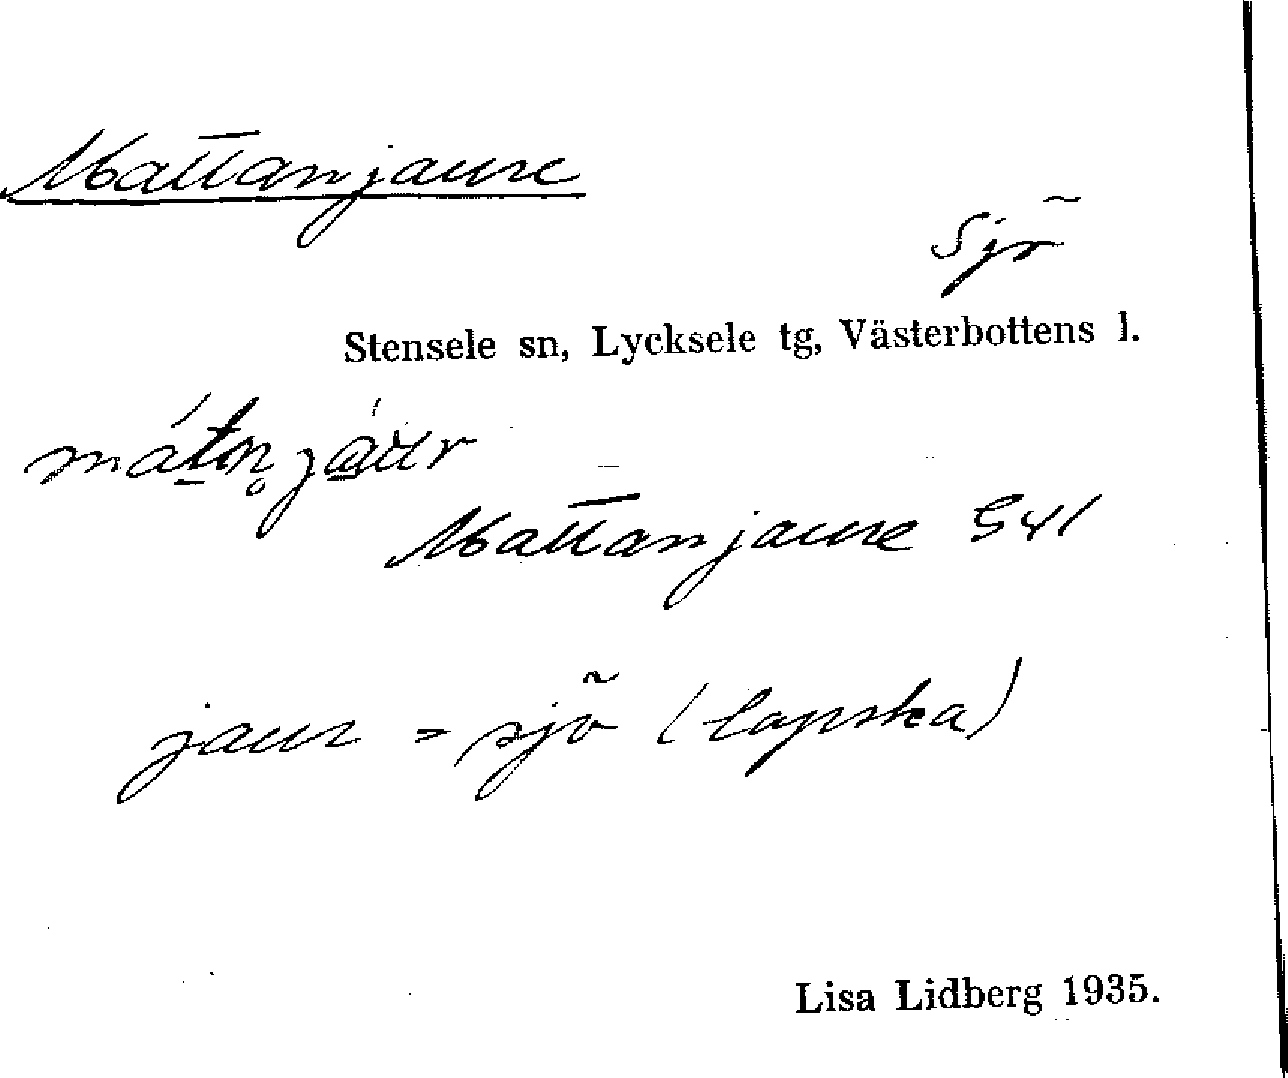 Mattanjaure
Sjö
Stensele sn, Lycksele tg, Västerbottens l.
Mattanjaure S41
jaur = sjö (lapska)
Lisa Lidberg 1935.